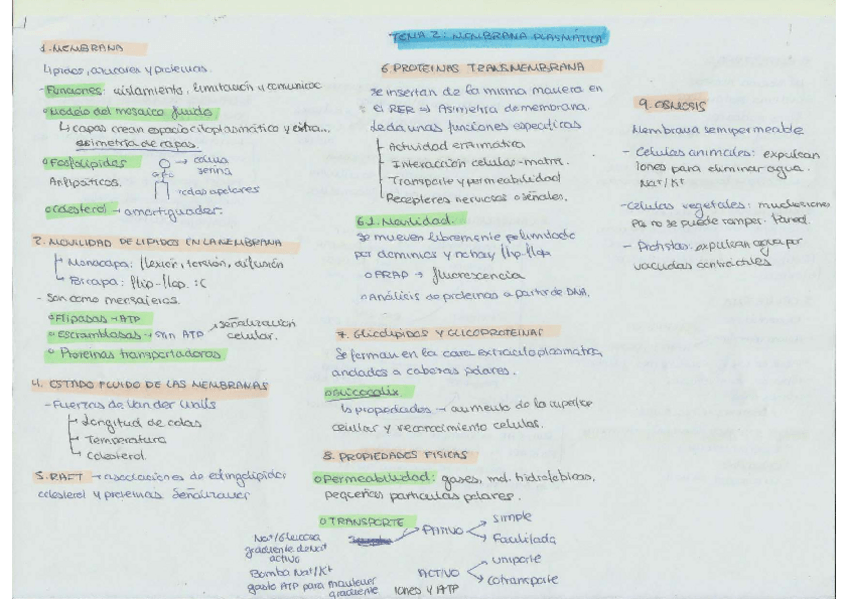 TEMA 2: MEMBRANA PLASMÁTICA
1. MEMBRANA
Lípidos, azucares y proteinas.
- Funciones: aislamiento, limitación y comunicac
Modelo del mosaico fluido
↳ capas crean espacio citoplasmático y extra...
asimetría de capas.
Fosfolípidos → colina
serina
Antipáticos. colas apolares
Colesterol → amortiguador.
2. MOVILIDAD DE LIPIDOS EN LA MEMBRANA
Monocapa: flexión, torsión, difusión
Bicapa: flip-flop. :(
- Son como mensajeros.
Flipasas → ATP
Escramblasas → sin ATP → señalización
celular.
Proteinas transportadoras
4. ESTADO FLUIDO DE LAS MEMBRANAS
- Fuerzas de Van der Walls
Longitud de colas
Temperatura
Colesterol.
5. RAFT → asociaciones de esfingolípidos
colesterol y proteinas señalizacer
6 PROTEINAS TRANSMEMBRANA
se insertan de la misma manera en
el RER ⇒ Asimetría de membrana.
le da unas funciones especificas
Actividad enzimática
Interacción celulas-matriz.
Transporte y permeabilidad
Receptores nerviosos o señales.
6.1. Movilidad.
Se mueven libremente pero limitado
por dominios y no hay flip-flop
FRAP → fluorescencia
Análisis de proteinas a partir de DNA.
7. Glicolípidos y GLICOPROTEINAS
Se forman en la cara extracitoplasmática,
anclados a cabezas polares.
Glicocalix
↳ propiedades → aumento de la superficie
celular y reconocimiento celular.
8. PROPIEDADES FISICAS
Permeabilidad: gases, mol. hidrofóbicas,
pequeñas particulas polares.
TRANSPORTE
PASIVO
simple
Facilitada
ACTIVO
uniporte
cotransporte
IONES Y ATP
Na+/Glucosa
gradiente de Na+
activo
Bomba Na+/K+
gasto ATP para mantener
gradiente
9. OSMOSIS
Membrana semipermeable
- Celulas animales: expulsan
iones para eliminar agua.
Na+/K+
- Células vegetales: muchos iones
Pa no se puede romper. Pared.
- Protistas: expulsan agua por
vacuolas contráctiles